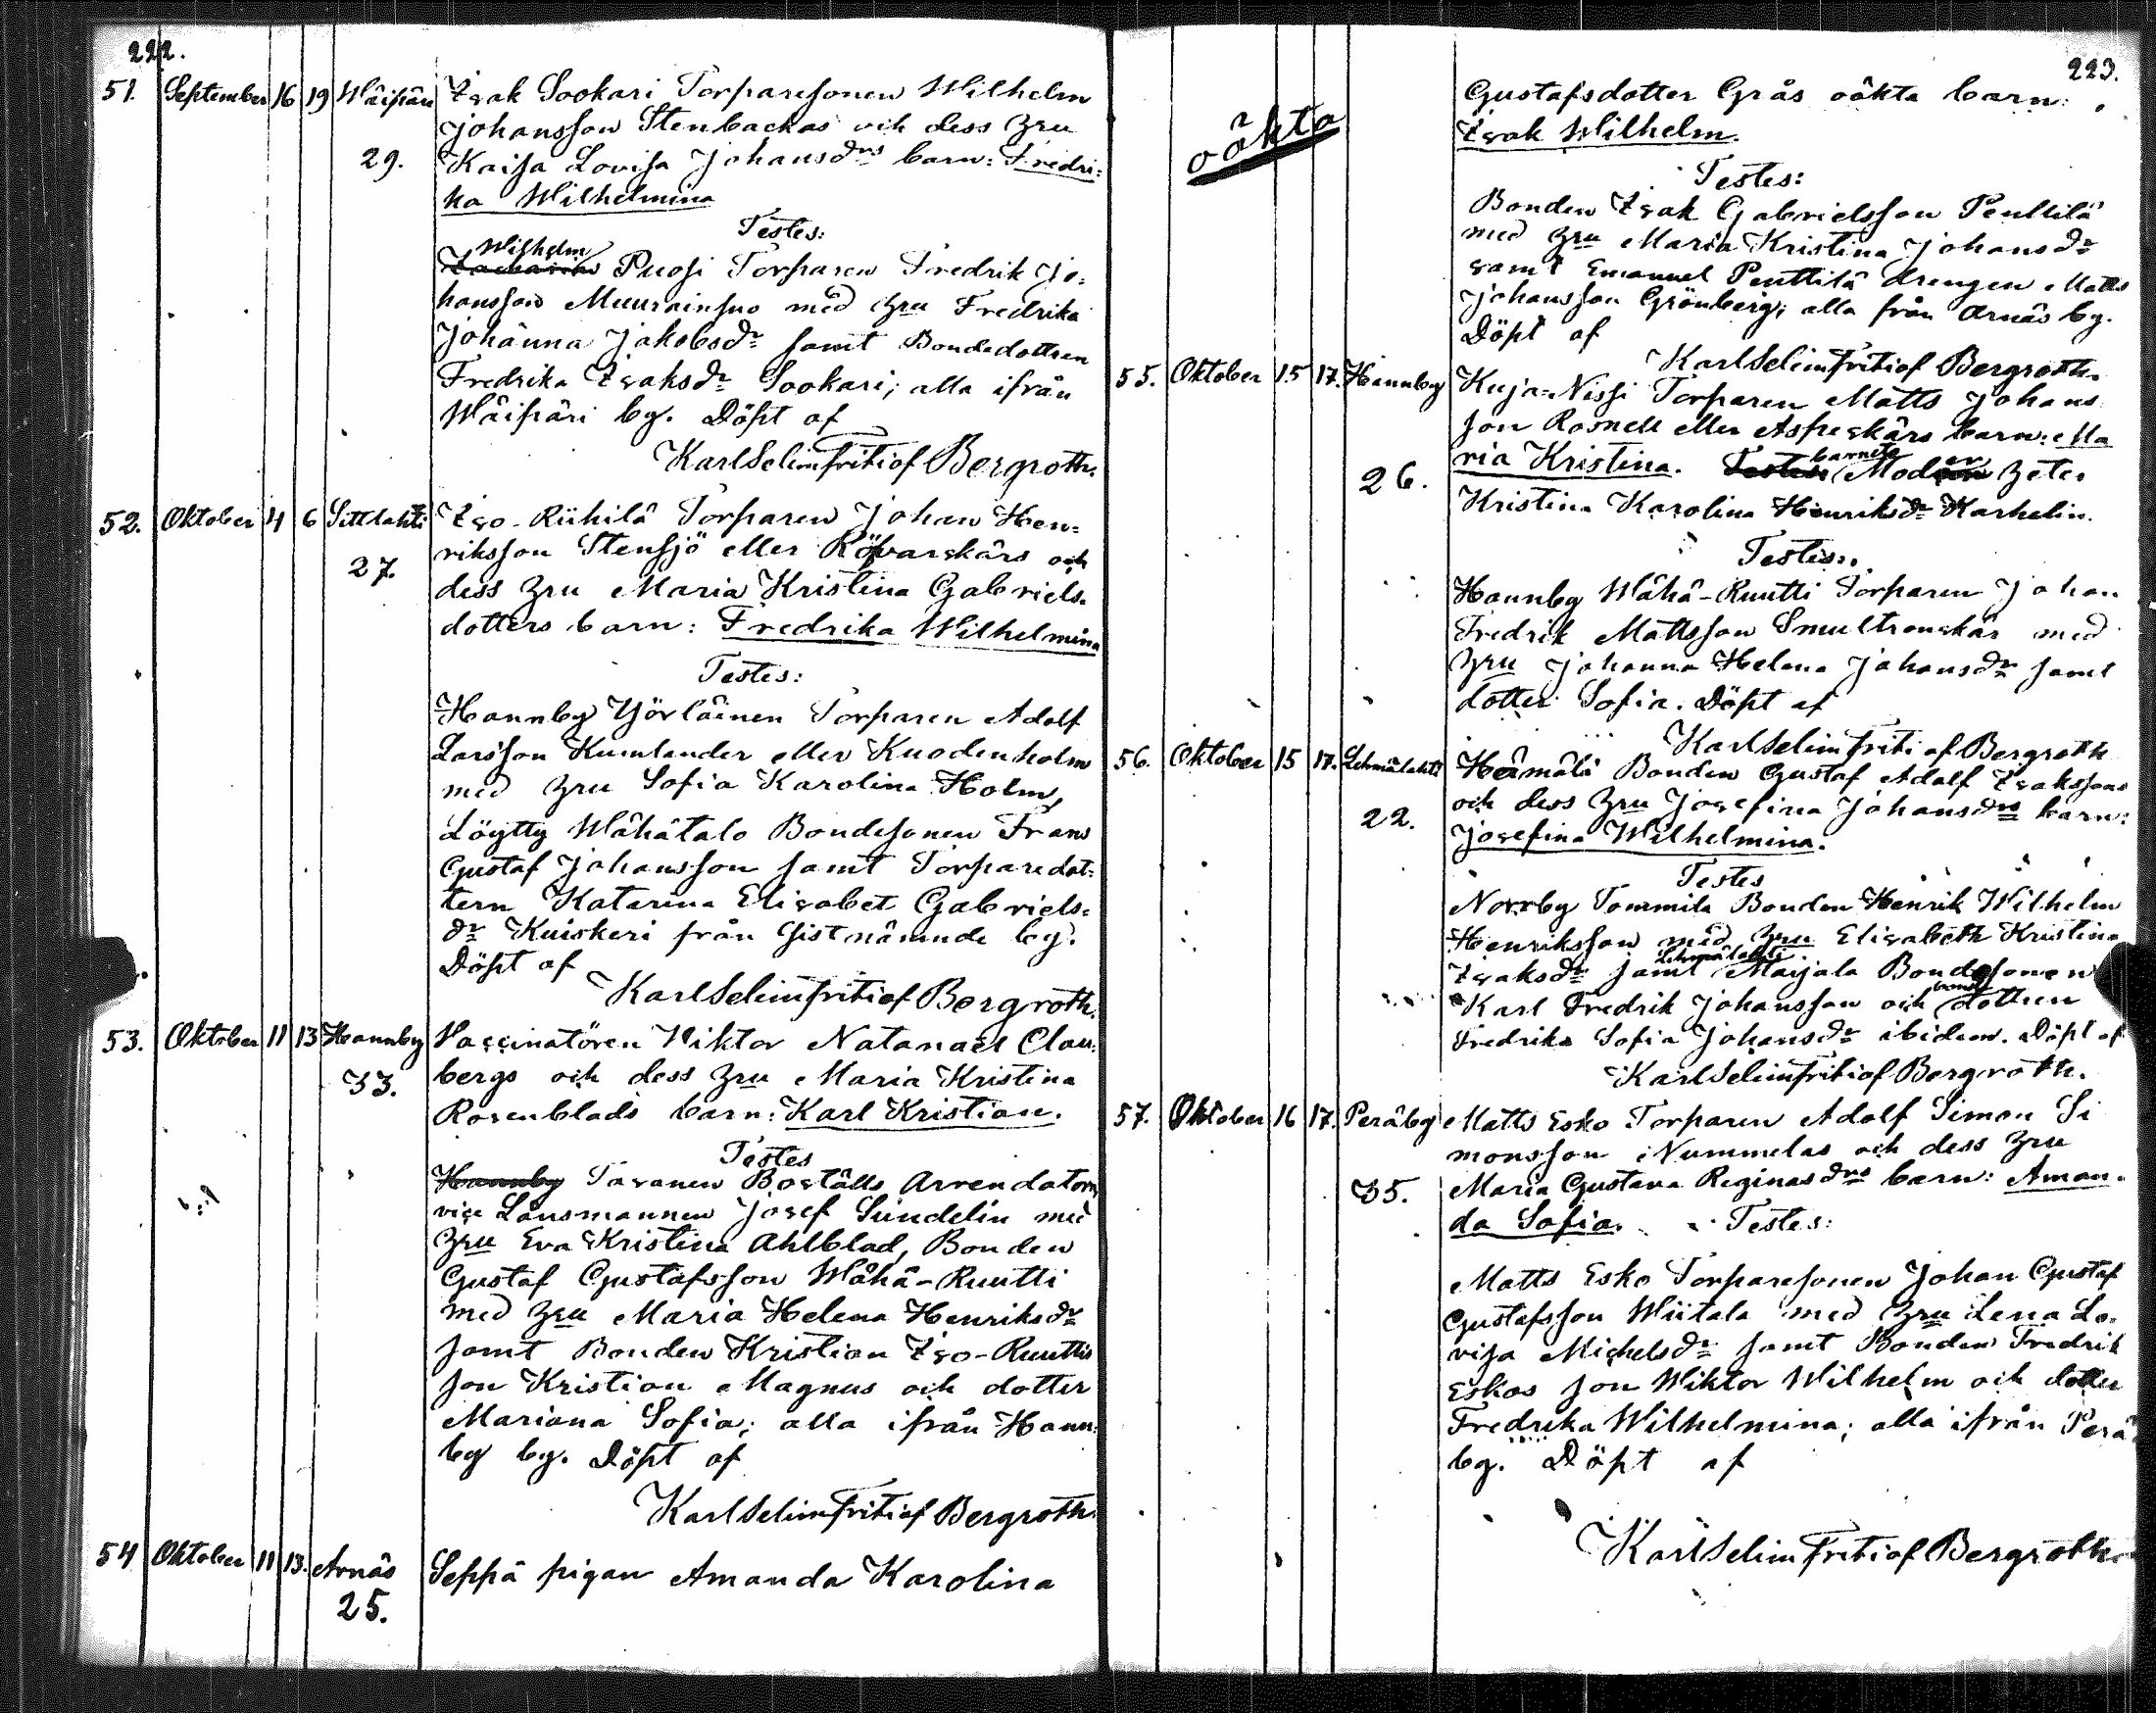 222.
51. September 16 19 Wäipäri Isak Sookari Torparesonen Wilhelm
Johansson Stenbackas och dess hru
29. Kaisa Lovisa Johansdrs barn: Fredri=
ka Wilhelmina
Testes:
Wilhelm
Puosi Torparen Fredrik Jo=
hansson Muurainsuo med hru Fredrika
Johanna Jakobsdr samt Bondedottren
Fredrika Isaksdr Sookari; alla ifrån
Wäipäri by. Döpt af
Karl Selim Fritiof Bergroth.
52. Oktober 4 6 Sittlahti Iso-Riihilä Torparen Johan Hen=
riksson Stensjö eller Röfvarskärs och
27. dess hru Maria Kristina Gabriels=
dotters barn: Fredrika Wilhelmina
Testes:
Hannby Yörläinen Torparen Adolf
Larsson Kumlander eller Kuodenholm
med hru Sofia Karolina Holm,
Löytty Wähätalo Bondesonen Frans
Gustaf Johansson samt Torparedot=
tern Katarina Elisabet Gabriels=
dr Kuiskeri från sistnämnde by.
Döpt af
Karl Selim Fritiof Bergroth.
53. Oktober 11 13 Hannby Vaccinatören Viktor Natanael Clau=
33. bergs och dess hru Maria Kristina
Rosenblads barn: Karl Kristian.
Testes
Hannby Tavanen Boställs Arrendatorn
vice Länsmannen Josef Sundelin med
hru Eva Kristina Ahlblad, Bonden
Gustaf Gustafsson Wähä-Ruutti
med hru Maria Helena Henriksdr
samt Bonden Kristian Iso-Ruuttis
son Kristian Magnus och dotter
Mariana Sofia; alla ifrån Hann=
by by. Döpt af
Karl Selim Fritiof Bergroth.
54 Oktober 11 13. Arnäs Seppä pigan Amanda Karolina
25.
223.
Gustafsdotter Grås oäkta barn:
oäkta
Isak Wilhelm.
Testes:
Bonden Isak Gabrielsson Penttilä
med hru Maria Kristina Johansdr
samt Emanuel Penttilä drengen Matts
Johansson Grönberg; alla från Arnäs by.
Döpt af
Karl Selim Fritiof Bergroth.
55. Oktober 15 17. Hannby Kuja-Nissi Torparen Matts Johans
son Rosnell eller Aspeskärs barn: Ma
ria Kristina. Testes barnets Moder heter
26. Kristina Karolina Henriksdr Karhelin.
Testes:
Hannby Wähä-Ruutti Torparen Johan
Fredrik Mattsson Smultronskär med
hru Johanna Helena Johansdr samt
dotter Sofia. Döpt af
Karl Selim Fritiof Bergroth
56. Oktober 15 17. Lehmälahti Heimälä Bonden Gustaf Adolf Isakssons
och dess hru Josefina Johansdrs barn:
22. Josefina Wilhelmina.
Testes
Norrby Tommila Bonden Henrik Wilhelm
Henriksson med hru Elisabeth Kristina
Isaksdr samt Lehmälahti Marjala Bondesonen
Karl Fredrik Johansson och bonde dottren
Fredrika Sofia Johansdr ibidem. Döpt af
Karl Selim Fritiof Bergroth.
57. Oktober 16 17. Peräby Matts Esko Torparen Adolf Simon Si
monsson Nummelas och dess hru
35. Maria Gustava Reginasdrs barn: Aman=
da Sofia. Testes:
Matts Esko Torparesonen Johan Gustaf
Gustafsson Wiitala med hru Lena Lo=
visa Michelsdr samt Bonden Fredrik
Eskos son Wiktor Wilhelm och dotter
Fredrika Wilhelmina; alla ifrån Perä
by. Döpt af
Karl Selim Fritiof Bergroth